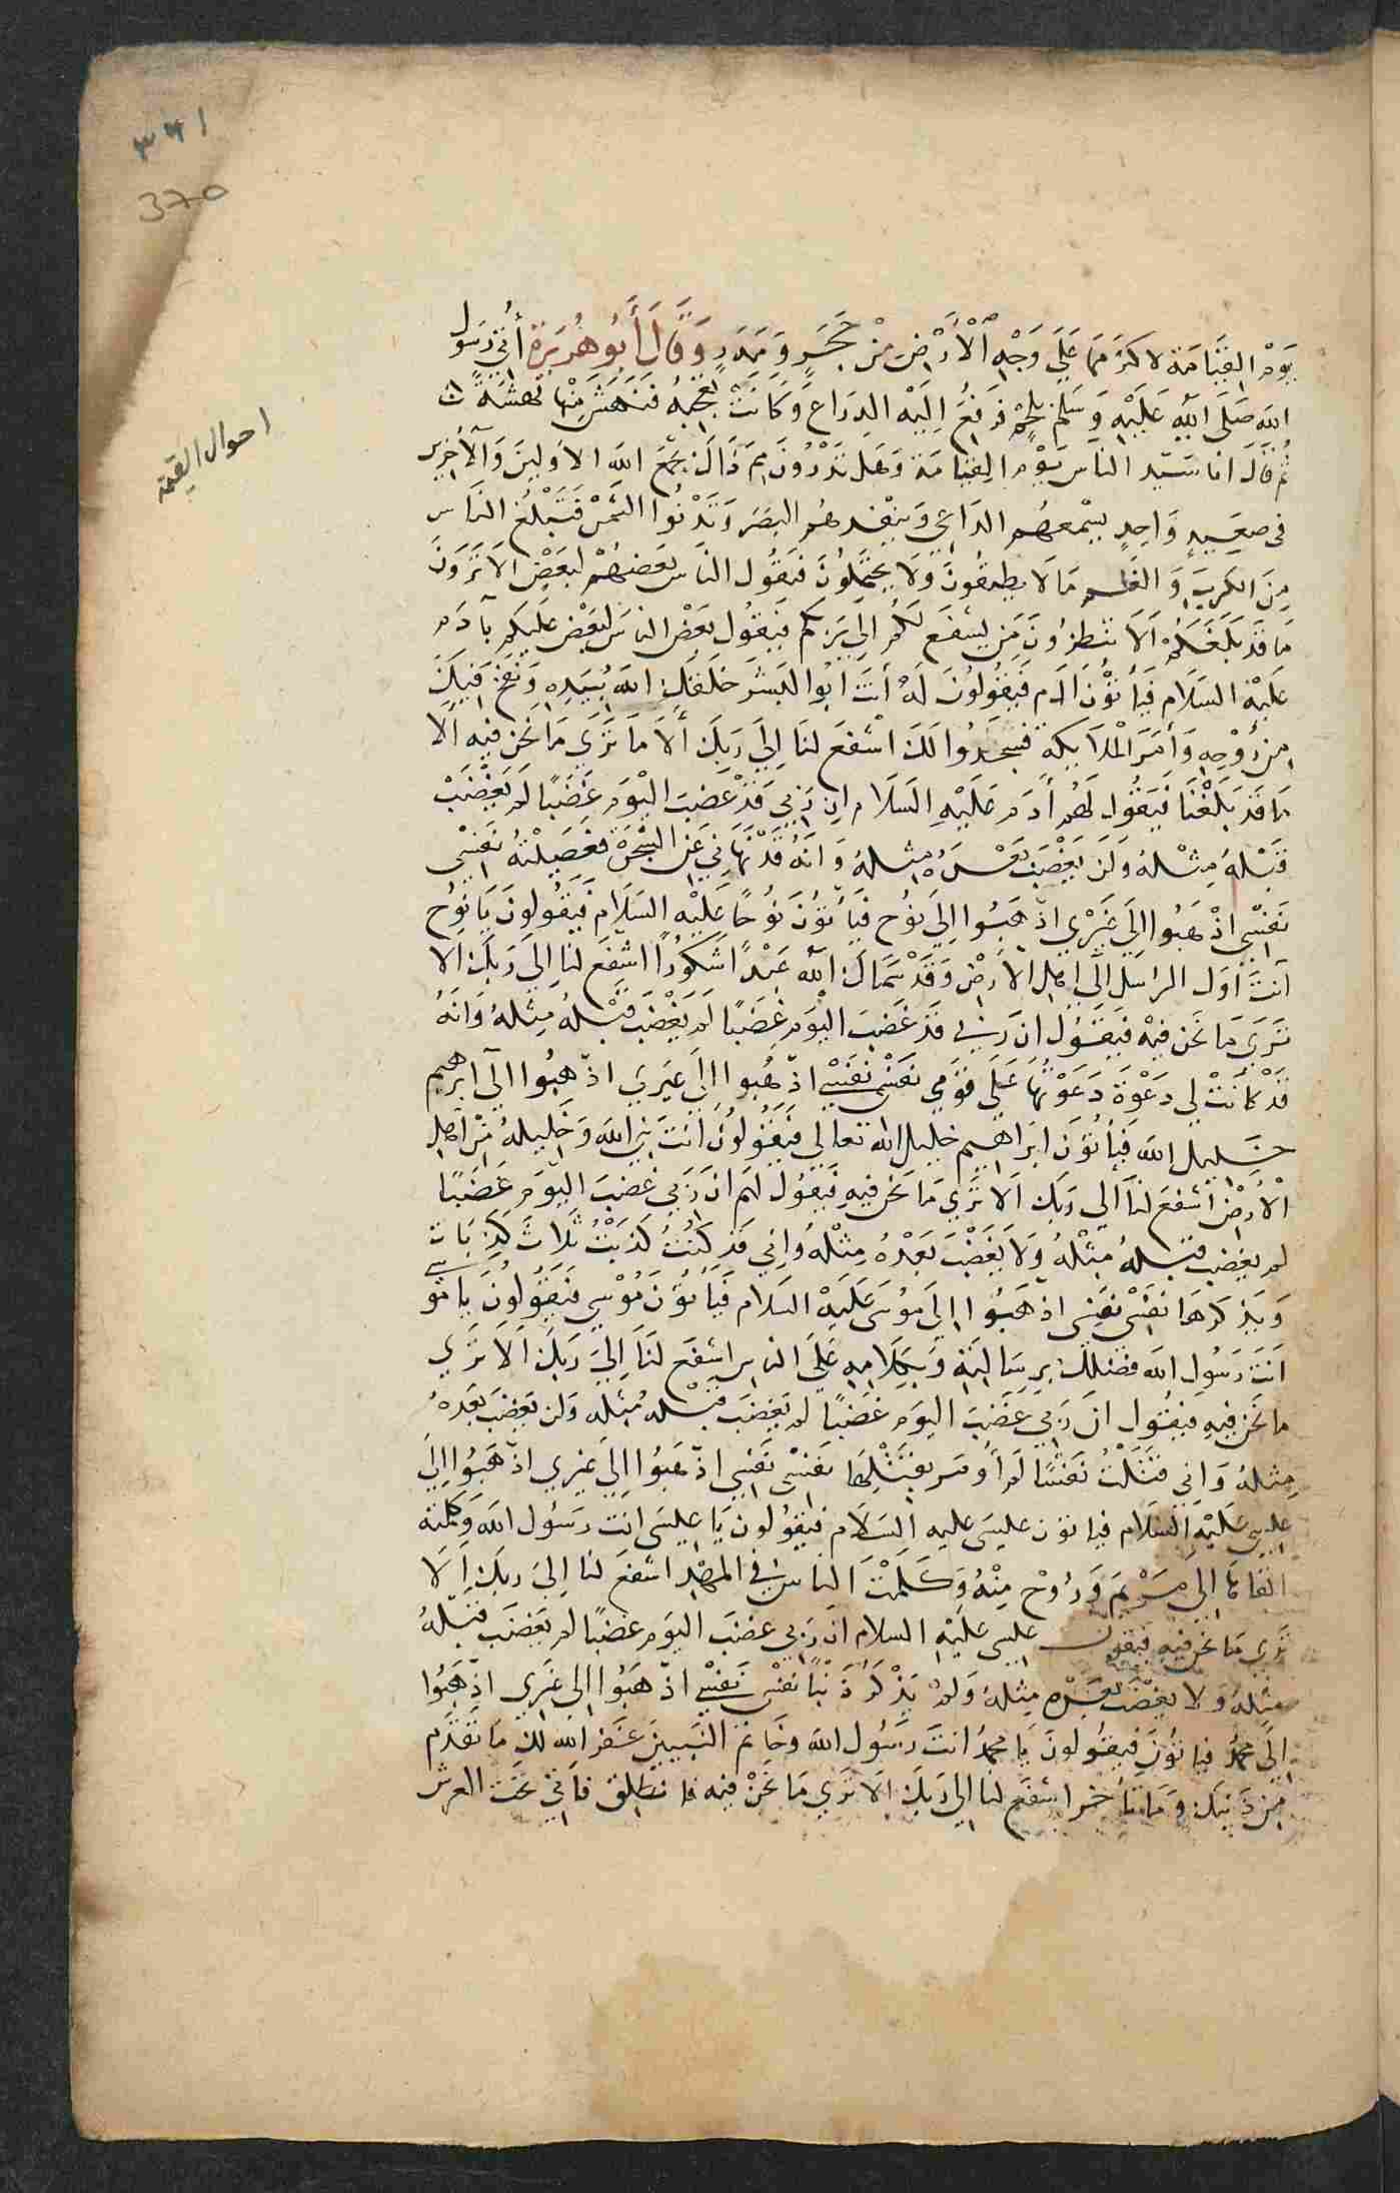 ٣٦١
370
احوال القيمة
يَوْم القِيَامَة لاكثر مما عَلَي وَجْهِ الْأَرْضِ مِنْ حَجَرٍ وَمَدَرٍ وَقَالَ أَبُو هُرَيْرَة أُتِيَ رَسُول
الله صَلَّى الله عَلَيْهِ وَسَلم بلحم فرفعَ الَيْه الذراع وَكَانَتْ تعجبهُ فَنَهَشَ مِنْهَا نهشَةً
ثُم قَالَ انا سَيّد الناس يَوْم القِيَامَة وَهل تَدْرُونَ مِم ذَالَ يجمَع الله الاوَلينَ وَالآخِرين
في صَعِيدٍ وَاحِدٍ يسْمعهُم الدَاعي وَينفذهُم البصَر وَتَدْنُوا الشَمْس فَتَبْلُغ النَاس
مِنَ الكَرب وَالغم مَا لا يطيقُونَ وَلَا يحتَمِلُونَ فيَقُول الناس بَعضهُمْ لبَعْض الا تَرَوْنَ
مَا قَد بَلَغَكُمْ اَلَا تنظرُونَ مَن يشفَع لَكُم الَي رَبكُم فيَقُول بَعْض الناس لبَعْض عليكم بآدَم
عَلَيْه السَلَام فيَأتُونَ آدَم فَيَقُولُونَ لَهُ أنتَ ابُوا البَشَر خلقَكَ الله بيَدِهِ وَنفخ فيكَ
مِن رُوْحِهِ وَأمَرَ الْمَلَايكة فسَجَدُوا لَكَ اشْفع لنَا اِلَي رَبكَ أَلَا مَا تَرَي مَا نَحن فيه الا
مَا قَد بَلَغْنَا فيَقُول لهُم أدَم عَلَيْهِ السَلَام ان رَبِي قَدْ غَضبَ اليْوَم غَضَبًا لم يَغْضَبْ
قَبْلهُ مِثْلهُ وَلَن يَغْضَب بَعْدَهُ مِثلهُ وَانهُ قَدْ نَهَاني عَن الشجَرَة فعَصَيْتهُ نَفْسي
نَفْسِي اذْهَبُوا الَي غَيْرِي اذْهَبُوا اِلَي نوُح فيَأتوُن نُوْحًا عَلَيْه السَلَام فَيَقُولون يَا نوُح
انتَ أوَل الرسل الَي اهل الارض وَقَدْ سَمَاكَ الله عَبْدًا شَكُورًا اشفَع لنا اِلَي رَبكَ الا
تَرَي مَا نَحن فيْه فيَقُول ان رَبي قد غَضبَ اليْوَم غَضبًا لم يَغْضَب قَبْلهُ مِثلهُ وَانهُ
قَدْ كَانَتْ لي دَعْوَة دَعَوْتهَا عَلَي قَوْمي نَفْسِي نَفْسِي اذهبُوا اِلَي غَيرِي اذهبُوا اِلَي ابرَهيم
خَليل الله فيَأتُونَ ابرَاهيم خليل الله تعَالي فيَقُولُونَ انتَ نَبي الله وَخَليلهُ مِنْ اهل
الأرضْ اشفَعْ لنَا الي رَبكَ الا تَرَي مَا نَحن فيهِ فيَقُول لهم ان رَبي غضبَ اليوَم غَضَبًا
لم يغضب قبلهُ مثْلهُ وَلَا يَغْضَبَ بَعْدهُ مِثْلهُ وَاني قد كُنْتُ كَذبتُ ثَلاثَ كذبَات
وَيذكرهَا نَفسي نفسي اذهَبُوا اِلَي مُوسَي عَلَيْه السَلام فيَأتوُنَ مُوْسي فيَقُولُونَ يَا مُوسي
انَتَ رَسُول الله فضلكَ برسَالتهِ وَبكَلَامهِ عَلَي الناس اشفَع لنَا اِلَي رَبكَ اَلا تَرَي
ما نَحن فيهِ فيقُول ان رَبي غَضبَ اليوَم غَضبًا لم يَغضَب قبْلهُ مِثلهُ وَلن يَغضبَ بَعدهُ
مِثلهُ وَاني قَتَلْتُ نَفسًا لم أُومَر بقتْلهَا نَفسي نَفسي اذهَبُوا اِلَي غَيرِي اذهَبُوا الَي
عيسي عَلَيْه السَلام فيَاتون عيسَي عليه السَلَام فيَقُولون يَا عيسَي انتَ رسُول الله وَكلمته
القَاهَا الي مَرْيَمَ وَرُوْح مِنْهُ وَكَلَمْتَ الناسَ في المهْد اشفع لنا الي رَبكَ الا
تَري مَا نحن فيه فيقول عيسي عليْه السلام ان رَبي غضبَ اليوَم غَضبًا لم يَغضَب قبْلهُ
مثْلهُ وَلا يغضب بعدَه مِثلهُ وَلم يَذْكر ذَنبًا نفسي نَفسي اذهَبُوا الي غَيري اذهَبُوا
الي محمد فياتُونَ فيقُولونَ يَا محمدُ انتَ رَسُول الله وَخَاتم النَبيينَ غَفرَ الله لك مَا تقَدَم
مِن ذَنبكَ وَمَا تأَخر اشفَع لنا الي رَبكَ الا تَرَي مَا نَحْنُ فيه فانطَلق فآتي تَحت العرش